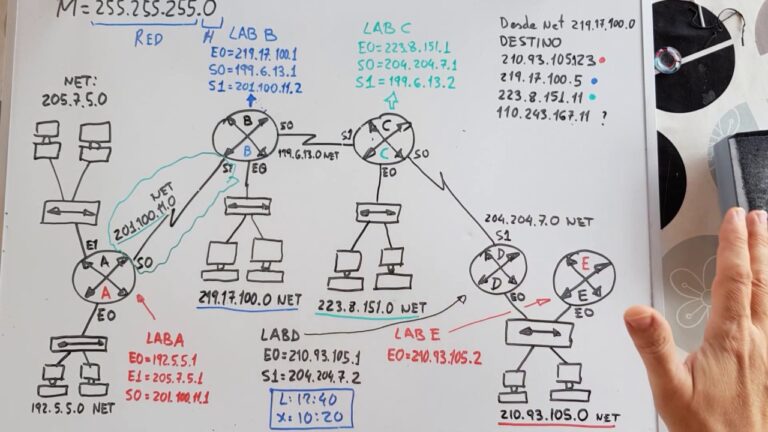 M = 255.255.255.0
RED H
LAB B
E0=219.17.100.1
S0=199.6.13.1
S1=201.100.11.2
LAB C
E0=223.8.151.1
S0=204.204.7.1
S1=199.6.13.2
Desde Net 219.17.100.0
DESTINO
210.93.105123
219.17.100.5
223.8.151.11
110.243.167.11 ?
NET:
205.7.5.0
B
B
S0
S1
E0
199.6.13.0 NET
S1
C
C
S0
E0
NET
201.100.11.0
E1
A
A
S0
E0
204.204.7.0 NET
S1
D
D
E0
E
E
E0
219.17.100.0 NET
223.8.151.0 NET
LABA
E0=192.5.5.1
E1=205.7.5.1
S0=201.100.11.1
LABD
E0=210.93.105.1
S1=204.204.7.2
LAB E
E0=210.93.105.2
192.5.5.0 NET
L: 17:40
X: 10:20
210.93.105.0 NET